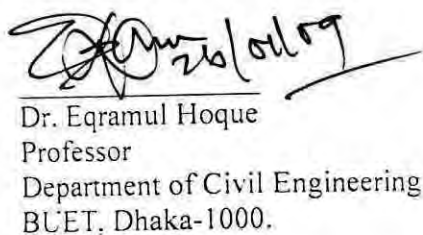 26/01/09
Dr. Eqramul Hoque
Professor
Department of Civil Engineering
BUET, Dhaka-1000.